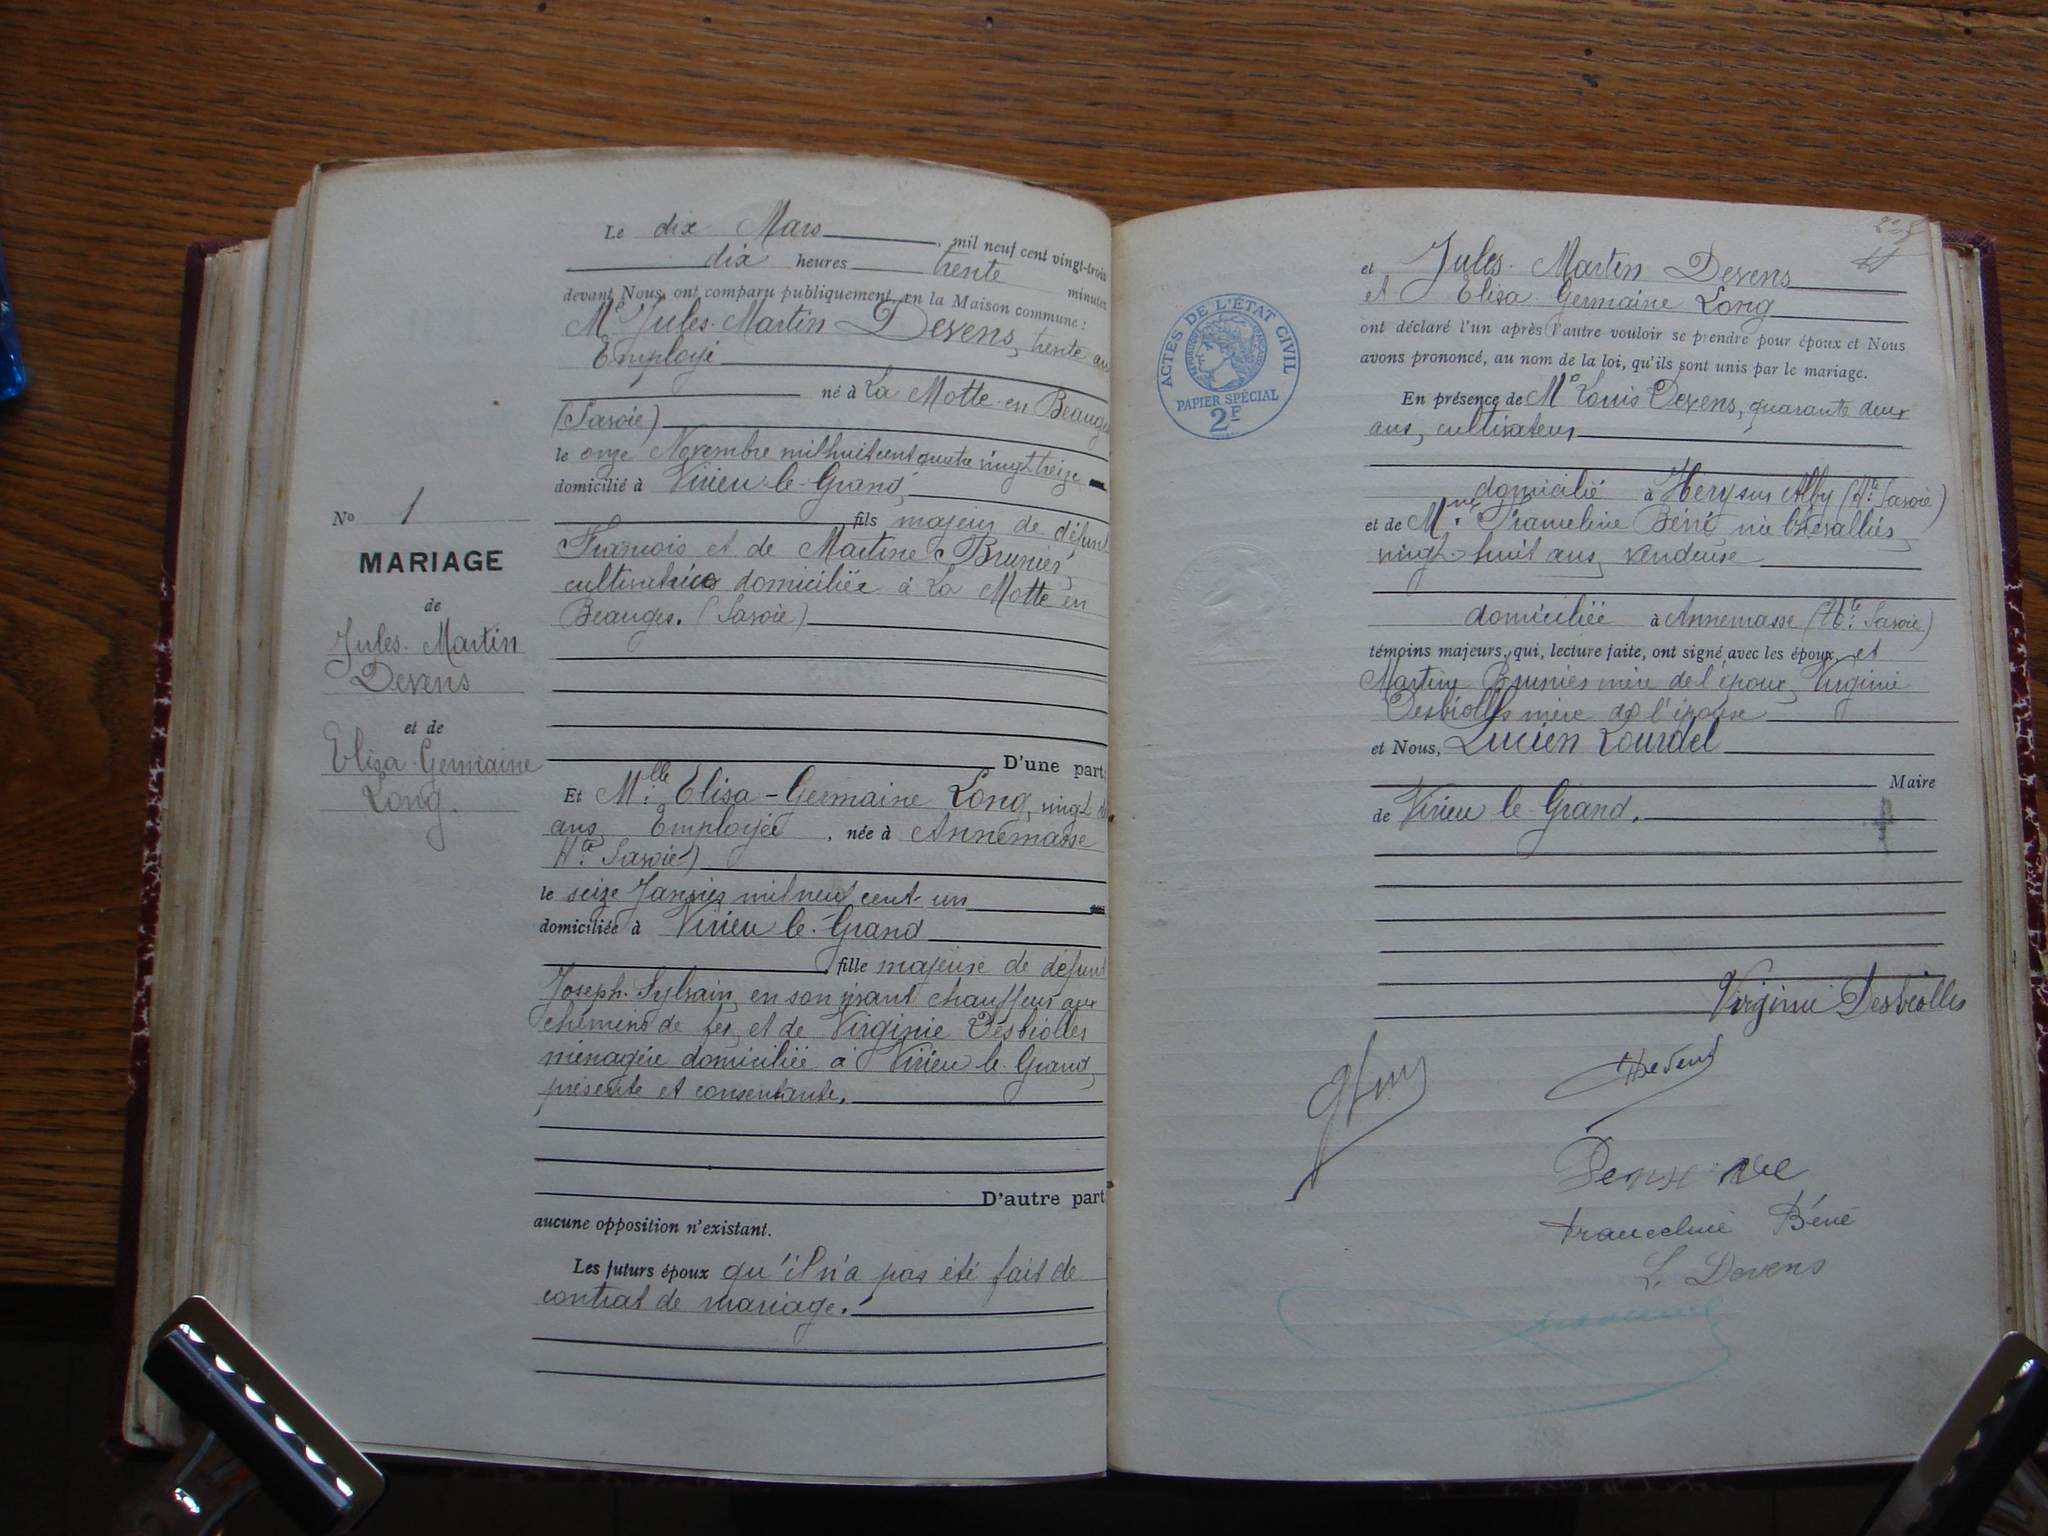 Le dix Mars, mil neuf cent vingt-trois
dix heures trente minutes
devant Nous ont comparu publiquement en la Maison commune :
Mr Jules-Martin Devens, trente ans
Employé
né à La Motte-en Beauges
(Savoie)
le onze Novembre mil huit cent quatre vingt treize
domicilié à Virieu-le-Grand,
fils majeur de défunt
François et de Martine Brunier,
cultivatrice domiciliée à La Motte en
Beauges. (Savoie)
D'une part;
No 1
MARIAGE
de
Jules-Martin
Devens
et de
Elisa-Germaine
Long.
Et Mlle Elisa-Germaine Long, vingt
ans, Employée, née à Annemasse
Hte Savoie)
le seize Janvier mil neuf cent-un
domiciliée à Virieu-le-Grand
fille majeure de défunt
Joseph-Sylvain, en son vivant chauffeur aux
chemins de fer, et de Virginie Desbiolles
ménagère domiciliée à Virieu-le-Grand,
présente et consentante.
D'autre part
aucune opposition n'existant.
Les futurs époux qu'il n'a pas été fait de
contrat de mariage.
et Jules-Martin Devens
et Elisa-Germaine Long
ont déclaré l'un après l'autre vouloir se prendre pour époux et Nous
avons prononcé, au nom de la loi, qu'ils sont unis par le mariage.
ACTES DE L'ÉTAT CIVIL
PAPIER SPÉCIAL
2F
En présence de Mr Louis Devens, quarante deux
ans, cultivateur
domicilié à Héry sur Alby (Hte Savoie)
et de Mme Franceline Béné, née Chevallier,
vingt-huit ans, vendeuse
domiciliée à Annemasse (Hte Savoie)
témoins majeurs, qui, lecture faite, ont signé avec les époux, et
Martine Brunier mère de l'époux, Virginie
Desbiolles mère de l'épouse
et Nous, Lucien Lourdel
Maire
de Virieu-le-Grand.
Virginie Desbiolles
Devens
Franceline Béné
L. Devens